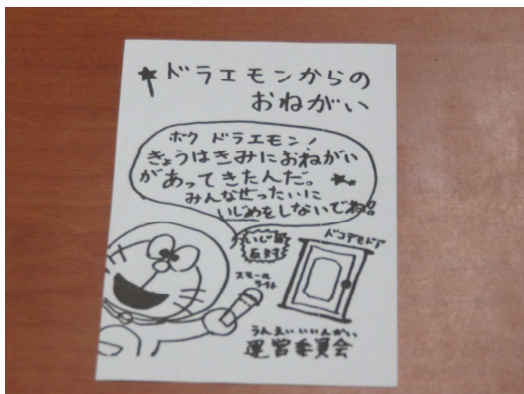 ドラエモンからの
おねがい
ボク ドラエモン!
きょうはきみにおねがい
があってきたんだ。
みんなぜったいに
いじめをしないでね!!
いじめ
反対
ドコデモドア
スモール
ライト
うんえいいいんかい
運営委員会